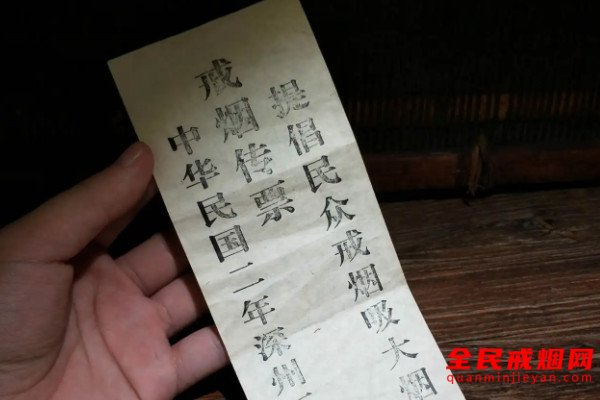 提倡民众戒烟吸大烟
戒烟传票
中华民国二年深州
全民戒烟网
quanminjieyan.com